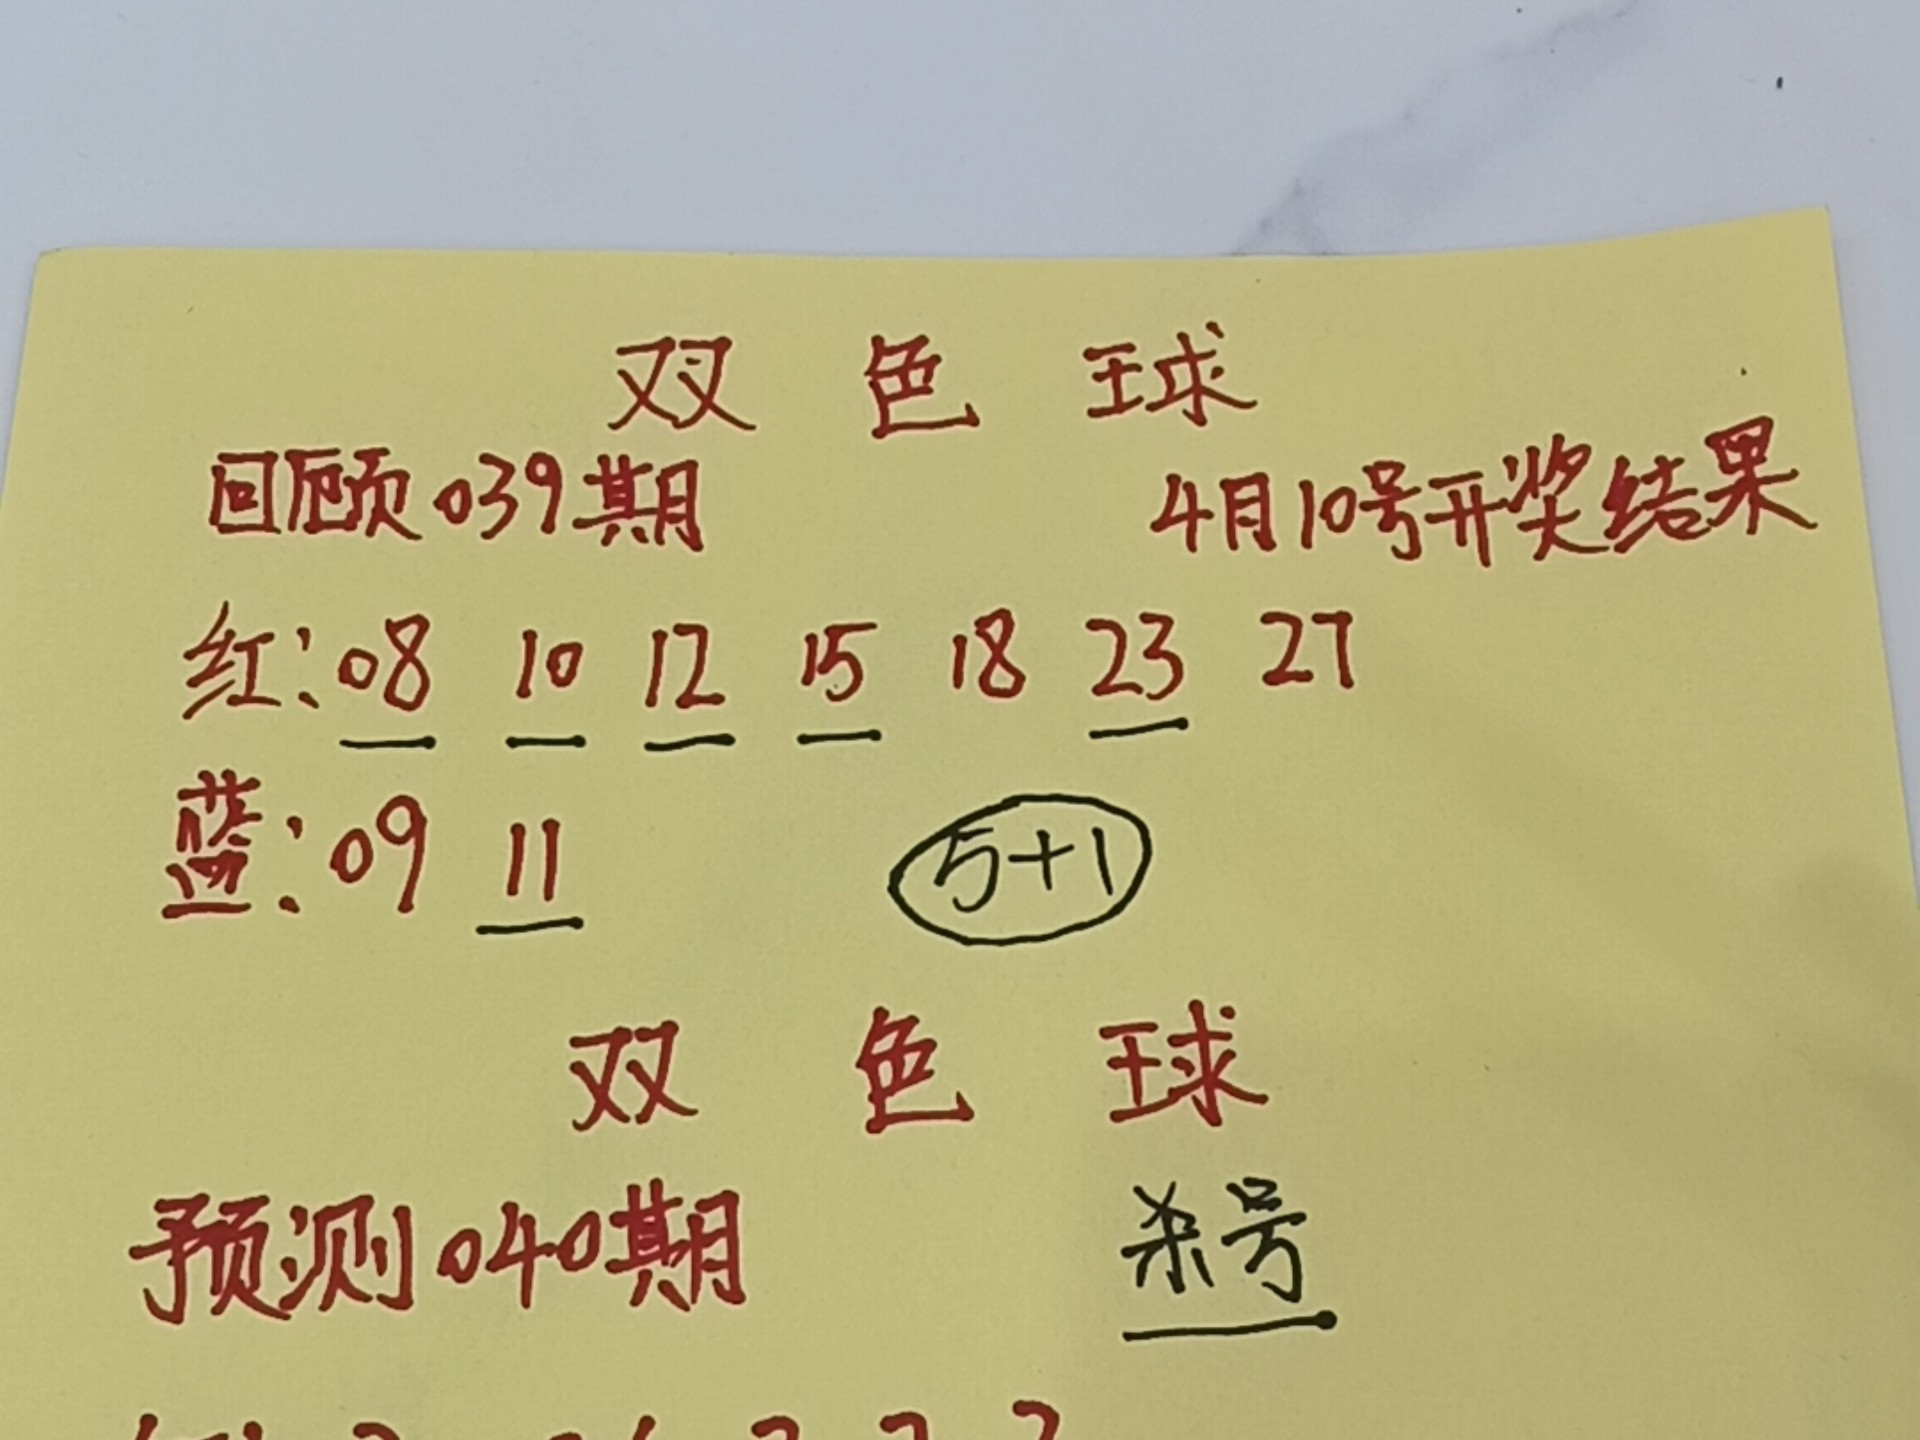 双 色 球
回顾039期 4月10号开奖结果
红: 08 10 12 15 18 23 27
蓝: 09 11 5+1
双 色 球
预测040期 杀号